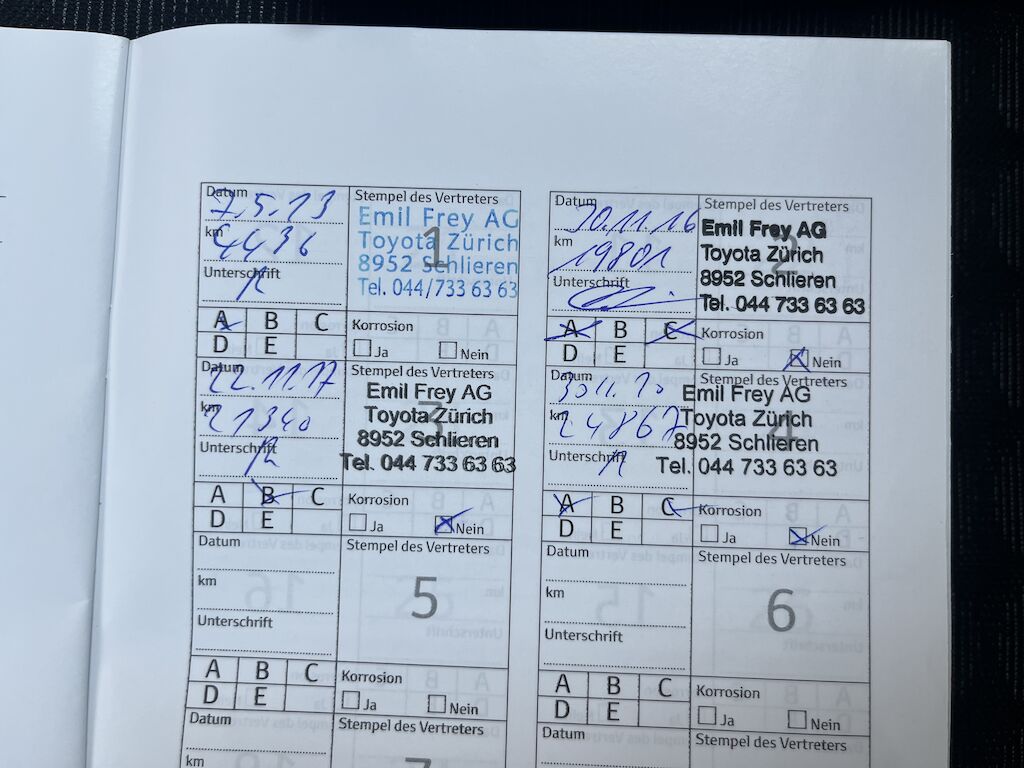 Datum
7.5.13
km
4436
Unterschrift
Stempel des Vertreters
Emil Frey AG
Toyota Zürich
8952 Schlieren
Tel. 044/733 63 63
1
A B C
D E
Korrosion
Ja Nein
Datum
30.11.16
km
19801
Unterschrift
Stempel des Vertreters
Emil Frey AG
Toyota Zürich
8952 Schlieren
Tel. 044 733 63 63
2
A B C
D E
Korrosion
Ja Nein
Datum
22.11.17
km
21340
Unterschrift
Stempel des Vertreters
Emil Frey AG
Toyota Zürich
8952 Schlieren
Tel. 044 733 63 63
3
A B C
D E
Korrosion
Ja Nein
Datum
km
24867
Unterschrift
Stempel des Vertreters
Emil Frey AG
Toyota Zürich
8952 Schlieren
Tel. 044 733 63 63
4
A B C
D E
Korrosion
Ja Nein
Datum
km
Unterschrift
Stempel des Vertreters
5
A B C
D E
Korrosion
Ja Nein
Datum
km
Unterschrift
Stempel des Vertreters
6
A B C
D E
Korrosion
Ja Nein
Datum
km
Stempel des Vertreters
Datum
Stempel des Vertreters